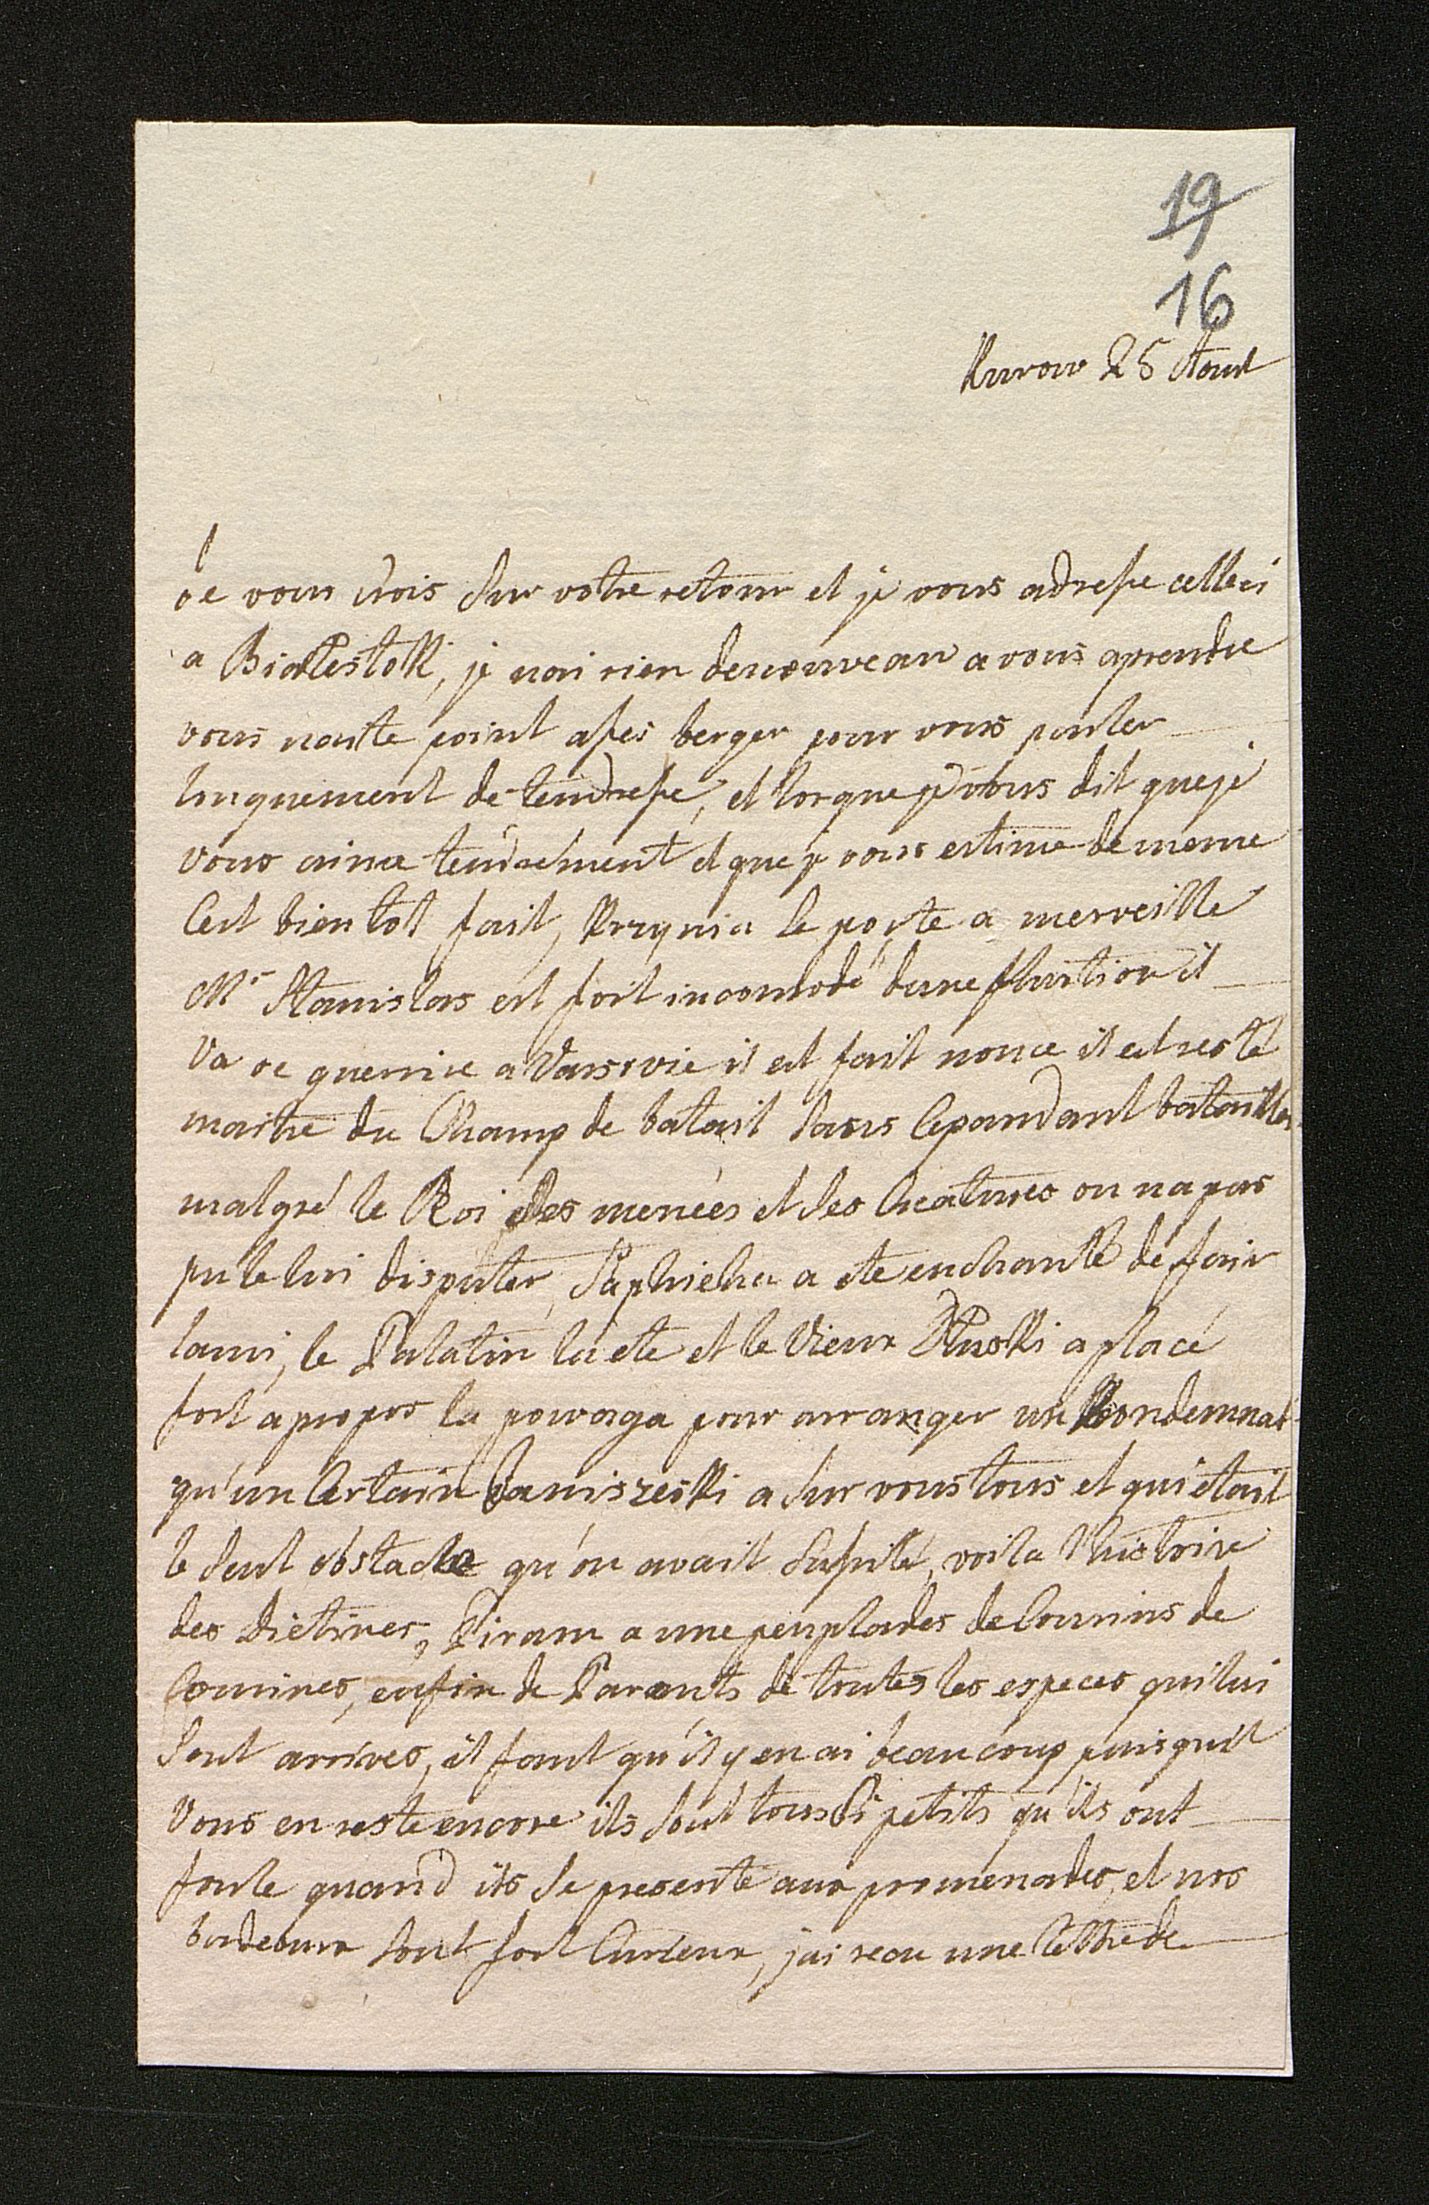 19
16
Kurow 25 Aout
Je vous crois sur votre retour et je vous adresse celleci
a Bialestokk, je nai rien denouveau a vous aprendre
vous naite point asses berger pour vous parler
longuement de tendresse, et lorque je vous dit queje
vous aime tendrement et que je vous estime de meme
Cest bientot fait, Krzynia le porte a merveille
Mr Stanislas est fort incomodé dune fluction il
va ce guerrire a Varsovie il est fait nonce il est resté
maitre du Champ de batail sans Cepandant batailler
malgré le Roi ses menées et ses Creatures on napas
pu le lui disputer, Saphieha a ete enchanté de fair
lami, le Palatin la ete et le Vieux Dluski a placé
fort apropos la powaga pour arranger un Kondemnat
qu'un Certain Janiszeski a sur vous tous et qui etait
le seul obstacle qu'on avait susité, voila lhistoire
des Dietines, Piram a une peuplades de Cousins de
Cousines, enfin de Parants de toutes les especes qui lui
sont arrivés, il faut qu'il y en ai beaucoup puisquil
Vous en reste encore ils sont tous si petits qu'ils ont
foule quand ils se presente aux promenades, et nos
bordeaux sont fort Curieux, jai recu une lettre de